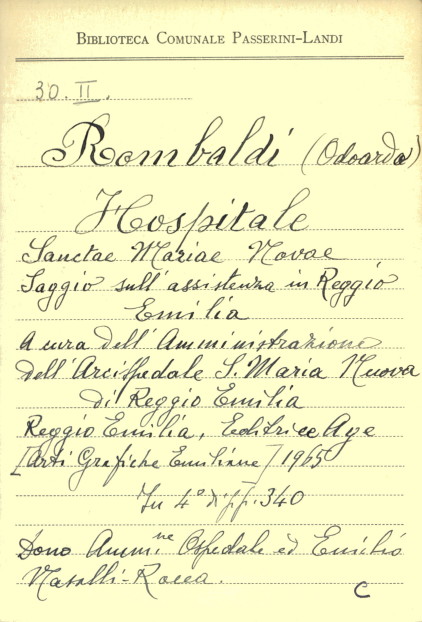 BIBLIOTECA COMUNALE PASSERINI-LANDI
30. II.
Rombaldi (Odoardo)
Hospitale
Sanctae Mariae Novae
Saggio sull'assistenza in Reggio
Emilia
A cura dell'Amministrazione
dell'Arcispedale S. Maria Nuova
di Reggio Emilia
Reggio Emilia, Editrice Age
[Arti Grafiche Emiliane] 1965
In 4° di pp. 340
Dono Amm.ne Ospedale ed Emilio
Nasalli-Rocca.
C